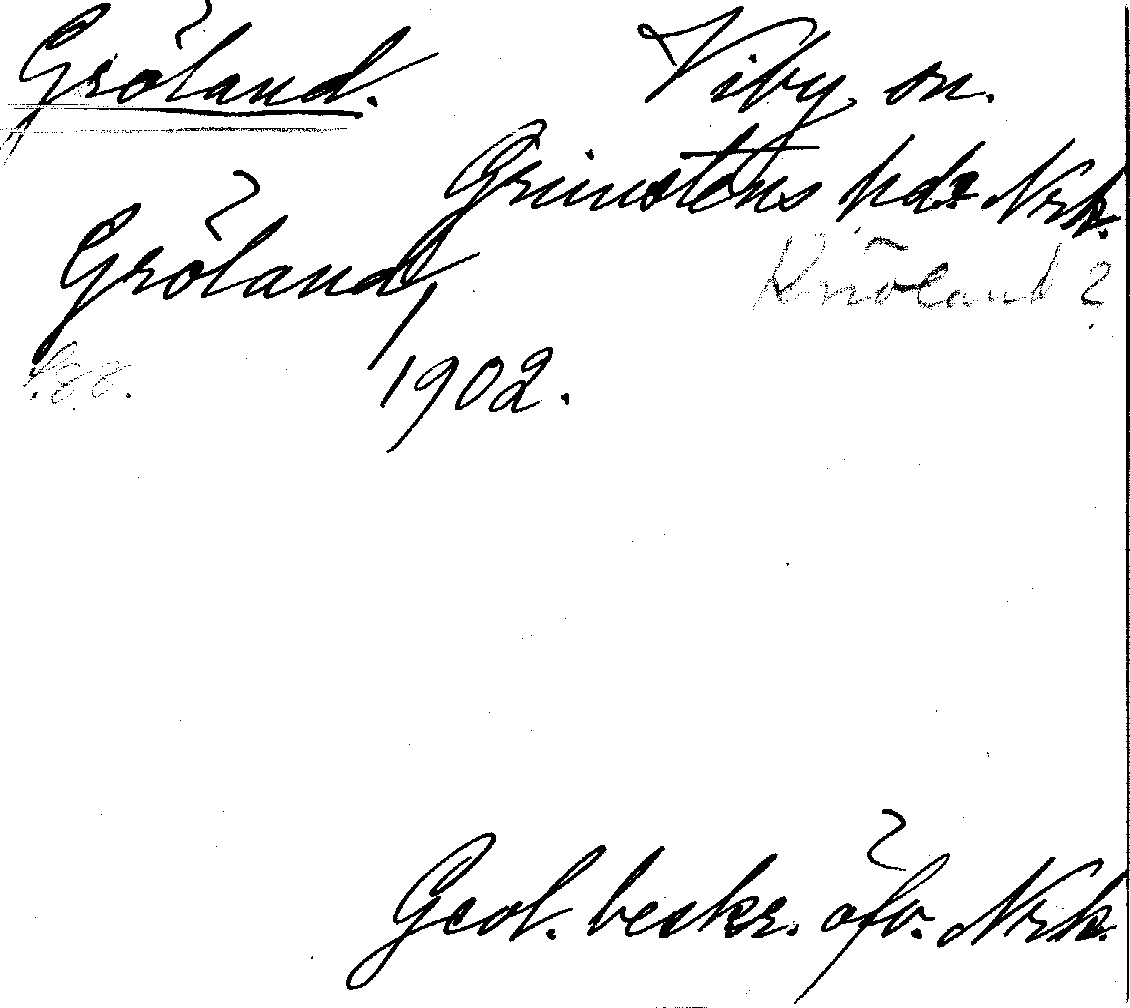 Gröland. Viby sn.
Grimstens hd. Nrk.
Gröland, Knöland?
1902.
Geol. beskr. öfv. Nrk.